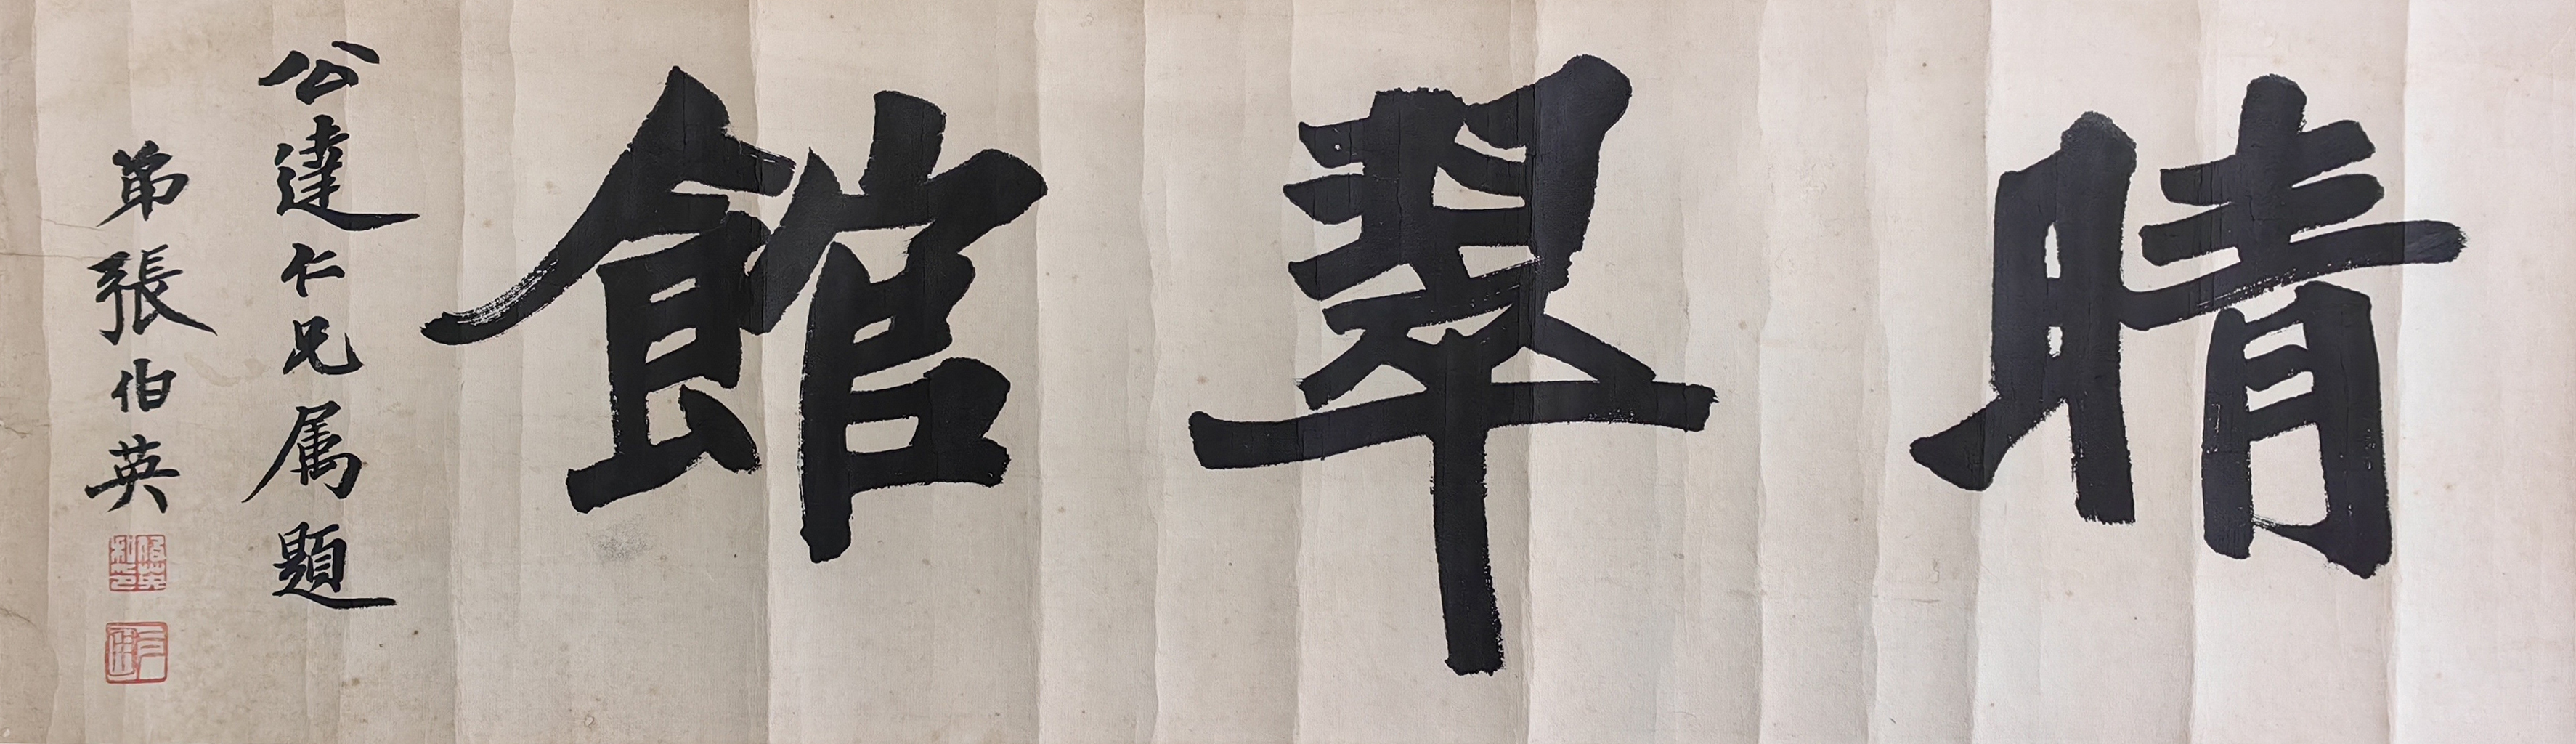 晴翠館
公達仁兄属題
弟張伯英